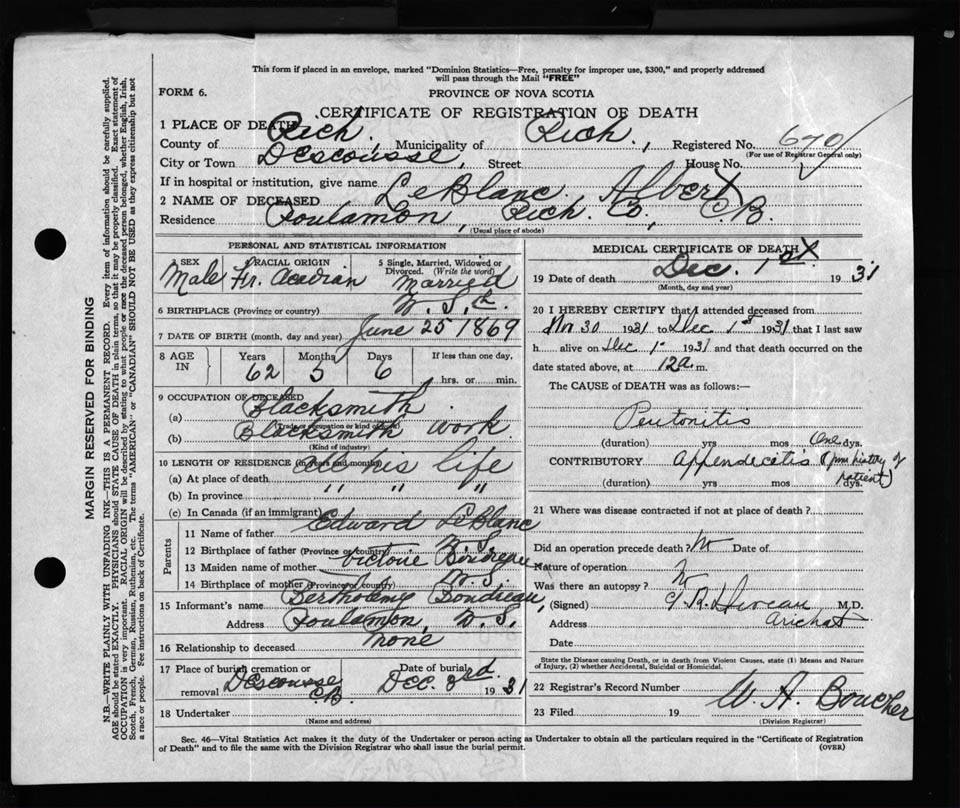 This form if placed in an envelope, marked "Dominion Statistics—Free, penalty for improper use, $300," and properly addressed
will pass through the Mail "FREE"
FORM 6.
PROVINCE OF NOVA SCOTIA
CERTIFICATE OF REGISTRATION OF DEATH
1 PLACE OF DEATH
County of Rich., Municipality of Rich., Registered No. 670
(For use of Registrar General only)
City or Town Descousse, Street House No.
If in hospital or institution, give name
2 NAME OF DECEASED LeBlanc Albert
Residence Poulamon, Rich. Co., C.B.
(Usual place of abode)
PERSONAL AND STATISTICAL INFORMATION
SEX Male
RACIAL ORIGIN Fr. Acadian
5 Single, Married, Widowed or Divorced. (Write the word) Married
6 BIRTHPLACE (Province or country) N. S.
7 DATE OF BIRTH (month, day and year) June 25 1869
8 AGE IN Years 62 Months 5 Days 6 If less than one day, hrs. or min.
9 OCCUPATION OF DECEASED
(a) Blacksmith
(Trade, occupation or kind of work)
(b) Blacksmith work
(Kind of industry)
10 LENGTH OF RESIDENCE (in years and months)
(a) At place of death all his life
(b) In province " " "
(c) In Canada (if an immigrant)
Parents
11 Name of father Edward LeBlanc
12 Birthplace of father (Province or country) N. S.
13 Maiden name of mother Victorie Boudreau
14 Birthplace of mother (Province or country) N. S.
15 Informant's name Bertholemy Boudreau,
Address Poulamon, N. S.
16 Relationship to deceased None
17 Place of burial cremation or removal Descousse C.B.
Date of burial Dec. 3rd 1931
18 Undertaker
(Name and address)
MEDICAL CERTIFICATE OF DEATH
19 Date of death Dec. 1st 1931
(Month, day and year)
20 I HEREBY CERTIFY that I attended deceased from
Nov 30 1931 to Dec 1st 1931 that I last saw
h alive on Dec 1st 1931 and that death occurred on
date stated above, at 12 a. m.
The CAUSE OF DEATH was as follows:—
Peritonitis
(duration) yrs mos One dys.
CONTRIBUTORY Appendecitis (from history of patient)
(duration) yrs mos dys.
21 Where was disease contracted if not at place of death?
Did an operation precede death? No Date of
Nature of operation
Was there an autopsy? N
(Signed) M.D.
Address Arichat
Date
State the Disease causing Death, or in death from Violent Causes, state (1) Means and Nature
of Injury, (2) whether Accidental, Suicidal or Homicidal.
22 Registrar's Record Number
23 Filed 19 W. A. Boucher
(Division Registrar)
Sec. 46—Vital Statistics Act makes it the duty of the Undertaker or person acting as Undertaker to obtain all the particulars required in the "Certificate of Registration
of Death" and to file the same with the Division Registrar who shall issue the burial permit.
(OVER)
MARGIN RESERVED FOR BINDING
N.B—WRITE PLAINLY WITH UNFADING INK—THIS IS A PERMANENT RECORD. Every item of information should be carefully supplied.
AGE should be stated EXACTLY. PHYSICIANS should STATE CAUSE OF DEATH in plain terms, so that it may be properly classified. Exact statement of
OCCUPATION is very important. RACIAL ORIGIN will be described by stating to what people or race the deceased person belonged, whether English, Irish,
Scotch, French, German, Russian, Ruthenian, etc. The terms "AMERICAN" or "CANADIAN" SHOULD NOT BE USED as they express citizenship but not
a race or people. See instructions on back of Certificate.